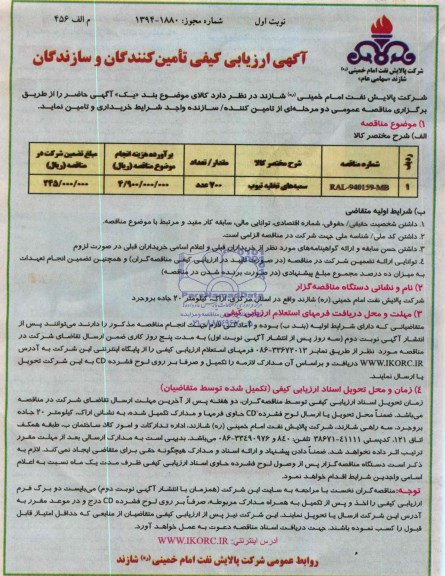 نوبت اول
شماره مجوز: ۱۸۸۰-۱۳۹۴
م الف ۴۵۶
شرکت پالایش نفت امام خمینی (ره)
شازند «سهامی عام»
آگهی ارزیابی کیفی تأمین‌کنندگان و سازندگان
شرکت پالایش نفت امام خمینی (ره) شازند در نظر دارد کالای موضوع بند «یک» آگهی حاضر را از طریق
برگزاری مناقصه عمومی دو مرحله‌ای از تامین کننده/ سازنده واجد شرایط خریداری و تامین نماید.
۱) موضوع مناقصه
الف) شرح مختصر کالا
ردیف
شماره مناقصه
شرح مختصر کالا
مقدار / تعداد
برآورده هزینه انجام موضوع مناقصه (ریال)
مبلغ تضمین شرکت در مناقصه (ریال)
۱
RAL-940159-MB
سمبه‌های تخلیه تیوب
۷۰۰ عدد
۴/۹۰۰/۰۰۰/۰۰۰
۲۴۵/۰۰۰/۰۰۰
ب) شرایط اولیه متقاضی
۱. داشتن شخصیت حقیقی/ حقوقی، شماره اقتصادی، توانایی مالی، سابقه کار مفید و مرتبط با موضوع مناقصه.
۲. داشتن کد ملی/ شناسه ملی جهت شرکت در مناقصه الزامی است.
۳. داشتن حسن سابقه و ارائه گواهینامه‌های مورد نظر از خریداران قبلی و اعلام اسامی خریداران قبلی در صورت لزوم
۴. توانایی ارائه تضمین شرکت در مناقصه (در صورت تائید در ارزیابی کیفی مناقصه‌گران) و همچنین تضمین انجام تعهدات
به میزان ده درصد مجموع مبلغ پیشنهادی (در صورت برنده شدن در مناقصه)
۲) نام و نشانی دستگاه مناقصه‌گزار
شرکت پالایش نفت امام خمینی (ره) شازند واقع در استان مرکزی، اراک، کیلومتر ۲۰ جاده بروجرد
۳) مهلت و محل دریافت فرمهای استعلام ارزیابی کیفی
متقاضیانی که دارای شرایط اولیه (بند ب) بوده و آمادگی لازم جهت انجام مناقصه مذکور را دارند می‌توانند پس از
انتشار آگهی نوبت دوم (سه روز پس از انتشار آگهی نوبت اول) به مدت پنج روز کاری ضمن ارسال تقاضای شرکت در
مناقصه مورد نظر از طریق نمابر ۳۳۶۷۲۰۱۳-۰۸۶ فرمهای استعلام ارزیابی کیفی را از پایگاه اینترنتی این شرکت به آدرس
WWW.IKORC.IR دریافت و براساس آن مدارک لازمه را تکمیل و صرفاً بر روی لوح فشرده CD به این شرکت تحویل
یا ارسال نمایند.
۴) زمان و محل تحویل اسناد ارزیابی کیفی (تکمیل شده توسط متقاضیان)
زمان تحویل اسناد ارزیابی کیفی توسط مناقصه‌گران، دو هفته پس از آخرین مهلت ارسال تقاضای شرکت در مناقصه
می‌باشد. ضمناً محل تحویل یا ارسال لوح فشرده CD حاوی فرمها و مدارک تکمیل شده، به نشانی اراک، کیلومتر ۲۰ جاده
بروجرد، سه راهی شازند، شرکت پالایش نفت امام خمینی (ره) شازند، اداره تدارکات و امور کالا ساختمان ب طبقه همکف
اتاق ۱۲۱، کدپستی ۴۱۱۱۱-۳۸۶۷۱ تلفن ۸۴۰ و ۳۳۴۹۰۹۷۶-۰۸۶ می‌باشد. بدیهی است به مدارک ارسالی بعد از مهلت مقرر
ترتیب اثر داده نخواهد شد. ضمناً دادن پیشنهاد و ارائه اسناد و مدارک هیچگونه حقی برای متقاضی ایجاد نمی کند. لازم به
ذکر است دستگاه مناقصه‌گزار پس از وصول لوح فشرده حاوی اسناد ارزیابی کیفی ظرف مدت یک ماه نسبت به اعلام
اسامی واجدین شرایط اقدام خواهد نمود.
توجه: مناقصه‌گران نخست با مراجعه به سایت این شرکت (همزمان با انتشار آگهی نوبت دوم) می‌بایست دو برگ فرم
ارزیابی کیفی را اخذ و پس از تکمیل به همراه مدارک مربوطه، صرفاً بر روی لوح فشرده CD درج و در موعد مقرر به
آدرس این شرکت ارسال یا تحویل نمایند. این شرکت نیز پس از ارزیابی کیفی متقاضیان از منابعی که حداقل امتیاز قابل
قبول را کسب نموده باشند، جهت دریافت اسناد مناقصه دعوت به عمل خواهد آورد.
آدرس اینترنتی: WWW.IKORC.IR
روابط عمومی شرکت پالایش نفت امام خمینی (ره) شازند